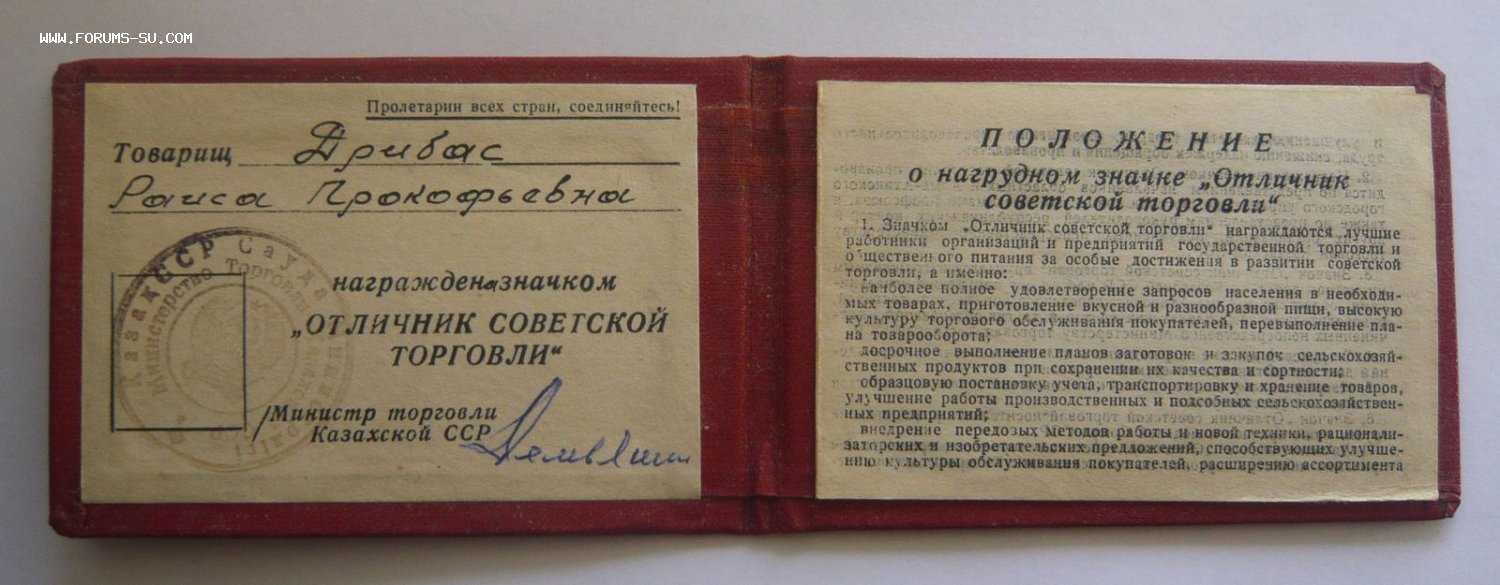 WWW.FORUMS-SU.COM
Пролетарии всех стран, соединяйтесь!
Товарищ Дрибас
Раиса Прокофьевна
КазахССР Сауда
Министерство Торговли
награжден а значком
„ОТЛИЧНИК СОВЕТСКОЙ
ТОРГОВЛИ“
/Министр торговли
Казахской ССР
ПОЛОЖЕНИЕ
о нагрудном значке „Отличник
советской торговли“
1. Значком „Отличник советской торговли“ награждаются лучшие
работники организаций и предприятий государственной торговли и
общественного питания за особые достижения в развитии советской
торговли, а именно:
наиболее полное удовлетворение запросов населения в необходи-
мых товарах, приготовление вкусной и разнообразной пищи, высокую
культуру торгового обслуживания покупателей, перевыполнение пла-
на товарооборота;
досрочное выполнение планов заготовок и закупок сельскохозяй-
ственных продуктов при сохранении их качества и сортности;
образцовую постановку учета, транспортировку и хранение товаров,
улучшение работы производственных и подсобных сельскохозяйствен-
ных предприятий;
внедрение передовых методов работы и новой техники, рационали-
заторских и изобретательских предложений, способствующих улучше-
нию культуры обслуживания покупателей, расширению ассортимента